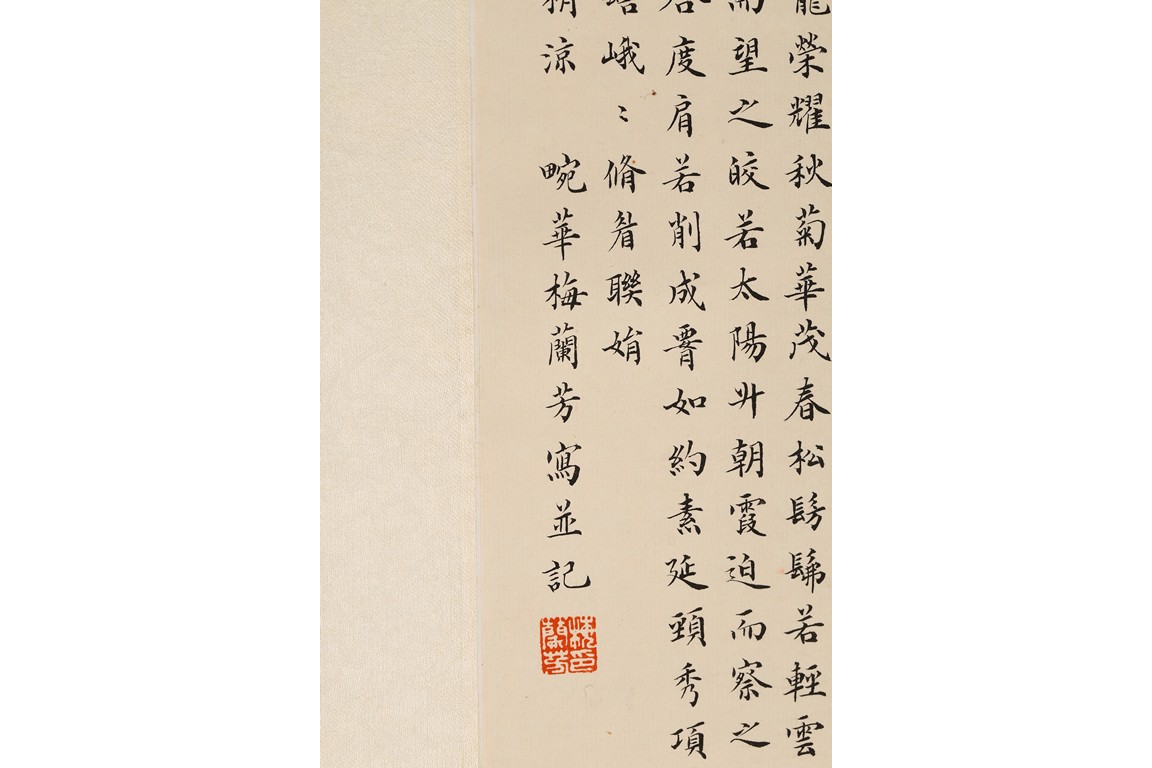 龍榮耀秋菊華茂春松髣髴若輕雲
而望之皎若太陽升朝霞迫而察之
度肩若削成罾如約素延頸秀項
峨〻脩眉聯娟
稍涼　畹華梅蘭芳寫並記
梅蘭芳印